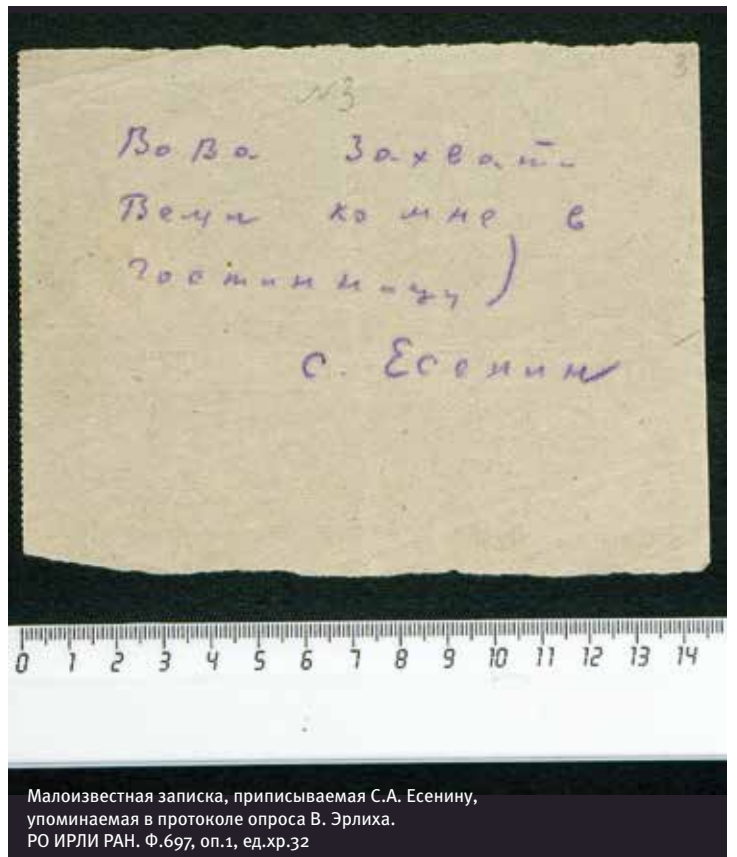 3
№3
Вова Захвати
Вещи ко мне в
гостинницу)
С. Есенин
0 1 2 3 4 5 6 7 8 9 10 11 12 13 14
Малоизвестная записка, приписываемая С.А. Есенину,
упоминаемая в протоколе опроса В. Эрлиха.
РО ИРЛИ РАН. Ф.697, оп.1, ед.хр.32